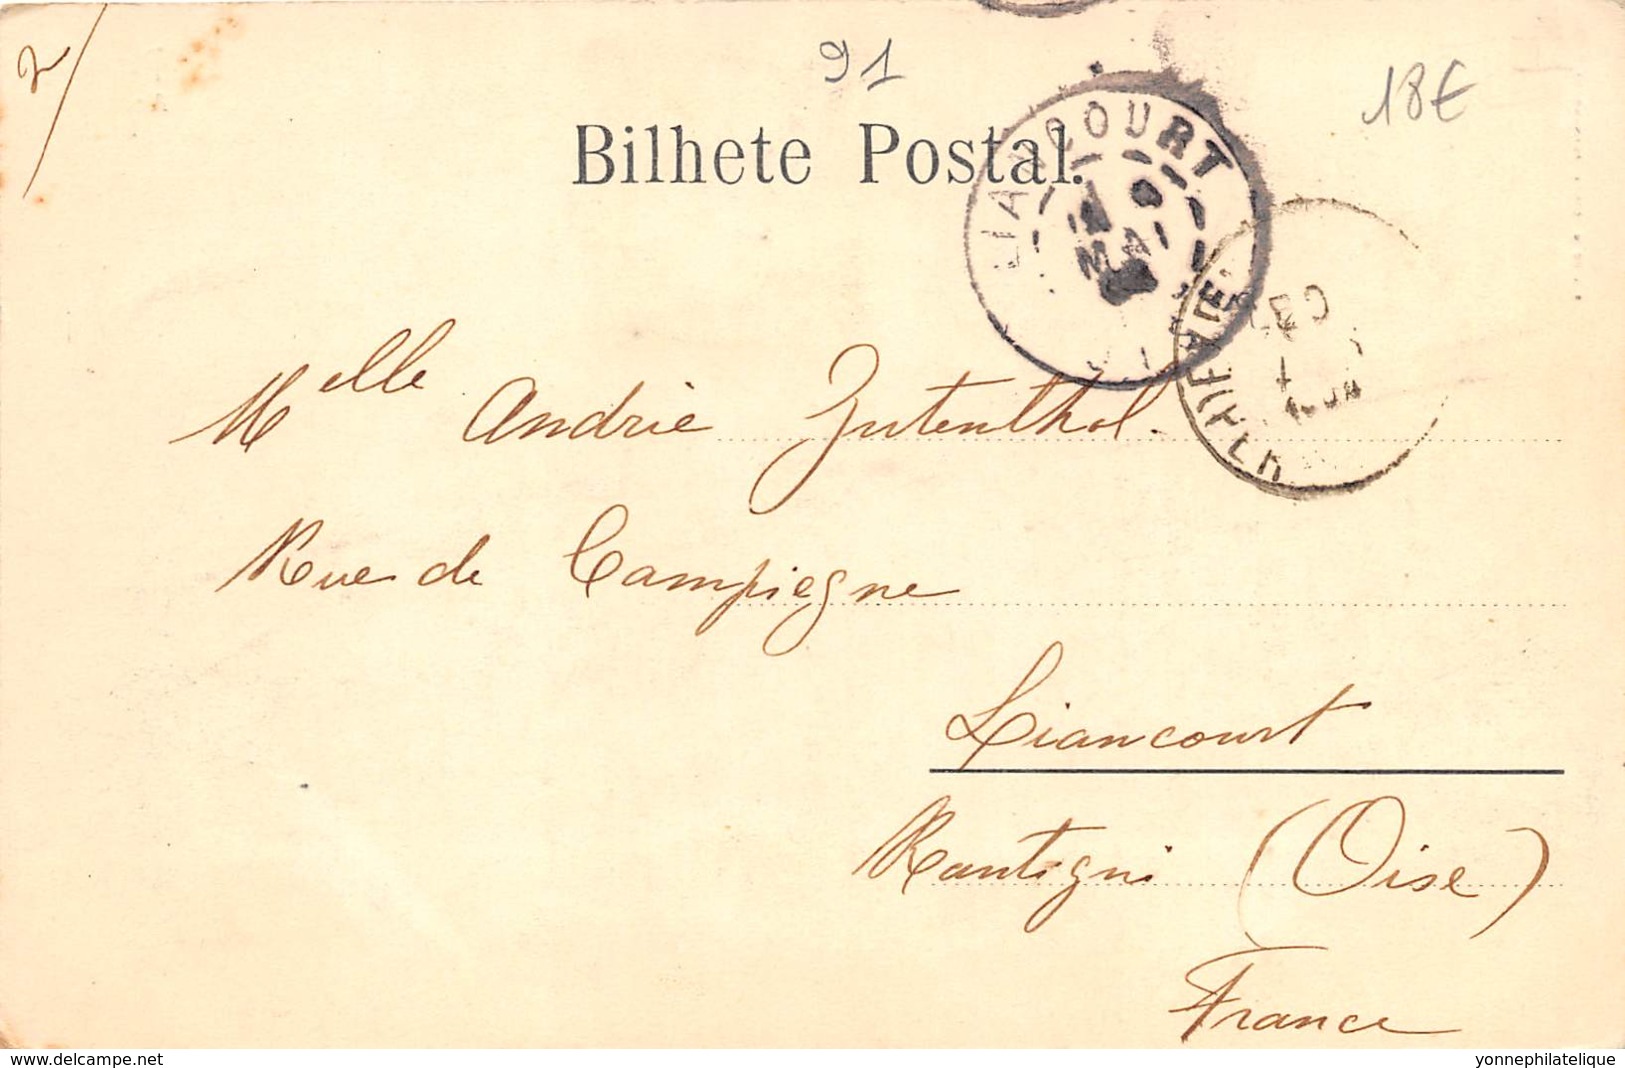 2
91
18€
Bilhete Postal.
LIANCOURT
Melle Andrie Zutenthal.
Rue de Compiegne
Liancourt
Rantigni (Oise)
France
www.delcampe.com
yonnephilatelique